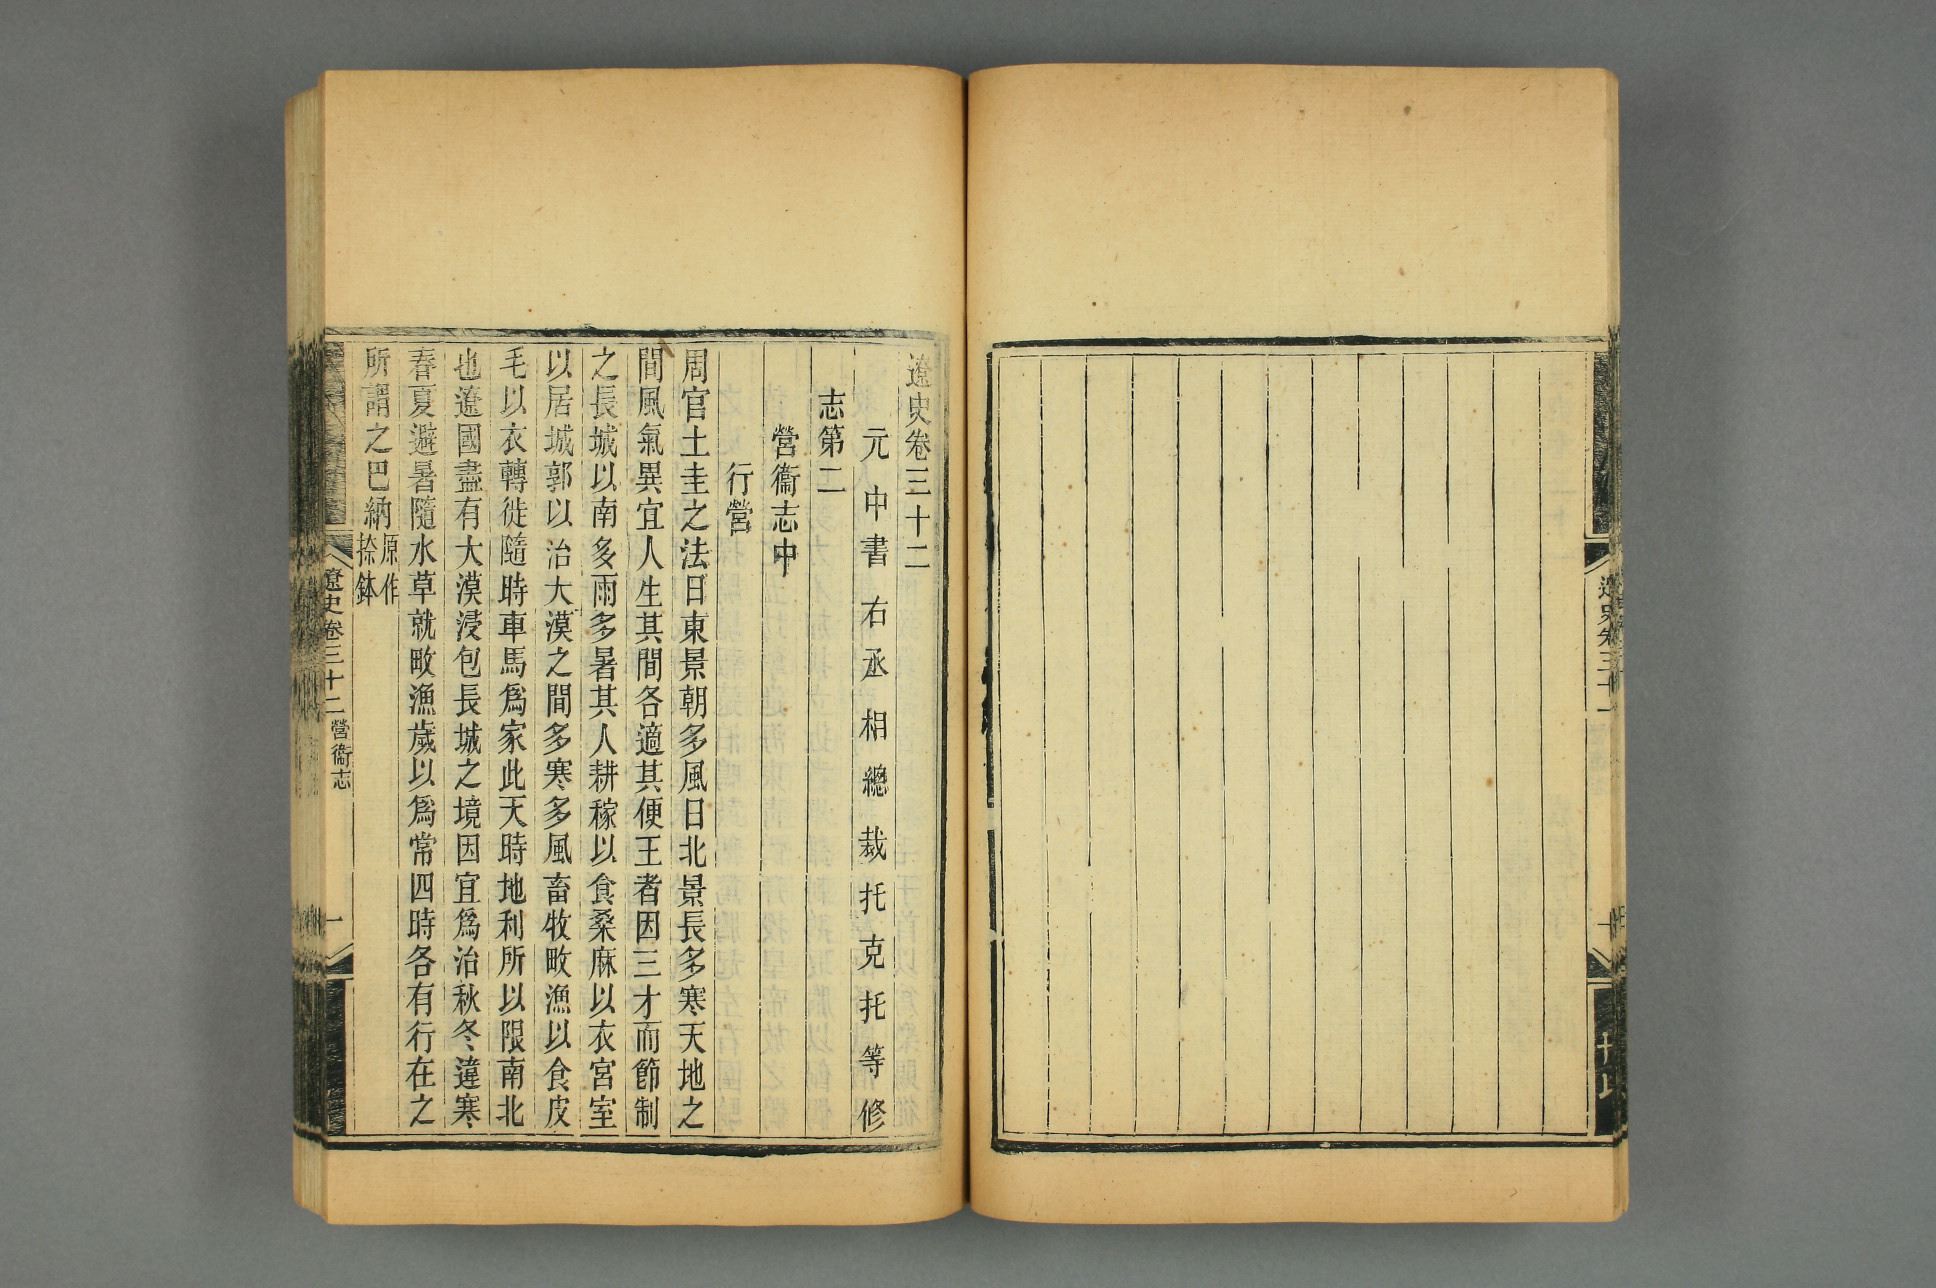 遼史卷三十一
十
遼史卷三十二
元中書右丞相總裁托克托等修
志第二
營衞志中
行營
周官土圭之法日東景朝多風日北景長多寒天地之
間風氣異宜人生其間各適其便王者因三才而節制
之長城以南多雨多暑其人耕稼以食桑麻以衣宮室
以居城郭以治大漠之間多寒多風畜牧畋漁以食皮
毛以衣轉徙隨時車馬爲家此天時地利所以限南北
也遼國盡有大漠浸包長城之境因宜爲治秋冬違寒
春夏避暑隨水草就畋漁歲以爲常四時各有行在之
所謂之巴納原作
捺鉢
遼史卷三十二 營衞志
一